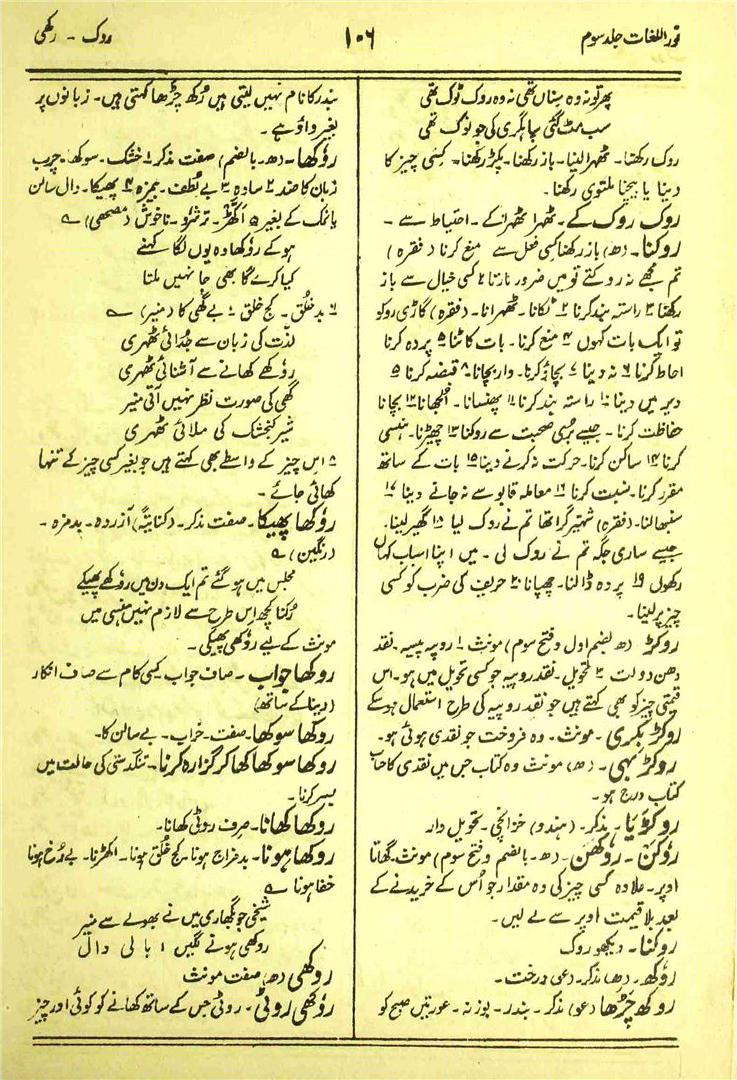 نور اللغات جلد سوم
۱۰۶
روک - رکھی
پھر تو نہ وہ سناں تھی نہ وہ روک ٹوک تھی
سب مٹ گئی سپاہگری کی جو نوک تھی
روک رکھنا۔ ٹھہرا لینا۔ باز رکھنا۔ پکڑ رکھنا۔ کسی چیز کا
دینا یا بیچنا ملتوی رکھنا۔
روک روک کے۔ ٹھہرا ٹھہرا کے۔ احتیاط سے۔
روکنا۔ (ھ) باز رکھنا کسی فعل سے منع کرنا (فقرہ)
تم مجھے نہ روکتے تو میں ضرور مارتا ۲ کسی خیال سے باز
رکھنا ۳ راستہ بند کرنا ۴ ٹکانا۔ ٹھہرانا۔ (فقرہ) گاڑی روکو
تو ایک بات کہوں ۴ منع کرنا۔ بات کاٹنا ۵ پردہ کرنا
احاطہ کرنا ۶ نہ دینا ۷ بچاؤ کرنا۔ وار بچانا ۸ قبضہ کرنا ۵
دیر میں دینا ۱۰ راستہ بند کرنا ۱۱ پھنسانا۔ الجھانا ۱۲ بچانا
حفاظت کرنا۔ جیسے بری صحبت سے روکنا ۱۳ چھیڑنا۔ ہنسی
کرنا ۱۴ ساکن کرنا۔ حرکت نہ کرنے دینا ۱۵ بات کے ساتھ
مقرر کرنا۔ نسبت کرنا ۱۶ معاملہ قابو سے نہ جانے دینا ۱۷
سنبھالنا۔ (فقرہ) شہتیر گرا تھا تم نے روک لیا ۱۸ گھیر لینا۔
جیسے ساری جگہ تم نے روک لی۔ میں اپنا اسباب کہاں
رکھوں ۱۹ پردہ ڈالنا۔ چھپانا ۲۰ حریف کی ضرب کو کسی
چیز پر لینا۔
روکڑ (ھ بضم اول و فتح سوم) مونث ۱ روپیہ پیسہ۔ نقد
دھن دولت ۲ تحویل۔ نقد روپیہ جو کسی تحویل میں ہو۔ اس
قیمتی چیز کو بھی کہتے ہیں جو نقد روپیہ کی طرح استعمال ہو سکے
روکڑ بکری۔ مونث۔ وہ فروخت جو نقدی ہوئی ہو۔
روکڑ بہی۔ (ھ) مونث وہ کتاب جس میں نقدی کا حساب
کتاب درج ہو۔
روکڑیا۔ مذکر۔ (ہندو) خزانچی۔ تحویل دار
روکن۔ روکھن۔ (ھ۔ بالضم و فتح سوم) مونث۔ گھاتا
اوپر۔ علاوہ کسی چیز کی وہ مقدار جو اُس کے خریدنے کے
بعد بلا قیمت اوپر سے لے لیں۔
روکنا۔ دیکھو روک
روکھ۔ (ھ) مذکر۔ (عو) درخت۔
روکھ چڑھا (عو) مذکر۔ بندر۔ بوزنہ۔ عورتیں صبح کو
بندر کا نام نہیں لیتی ہیں رُکھ چڑھا کہتی ہیں۔ زبانوں پر
بغیر واؤ ہے۔
روکھا۔ (ھ۔ بالضم) صفت مذکر ۱ خشک۔ سوکھا۔ چرب
زبان کا ضد ۲ سادہ ۳ بے لطف۔ بیمزہ ۴ پھیکا۔ دال سالن
یا نمک کے بغیر ۵ اکھڑ۔ ترشرو۔ ناخوش (مصحفی) ؎
ہو کے روکھا وہ یوں لگا کہنے
کیا کرے گا بھی جا نہیں ملتا
۶ بدخلق۔ کج خلق ۷ بے گھی کا (منیر) ؎
لذت کی زبان سے جدائی ٹھہری
روکھے کھانے سے آشنائی ٹھہری
گھی کی صورت نظر نہیں آتی منیر
شیر کنجشک کی ملائی ٹھہری
۸ اس چیز کے واسطے بھی کہتے ہیں جو بغیر کسی چیز کے تنہا
کھائی جائے۔
روکھا پھیکا۔ صفت مذکر۔ (کنایتہً) آزردہ۔ بدمزہ۔
(رنگین) ؎
مجلس میں ہو گئے تم ایک دن میں روکھے پھیکے
رُکنا کچھ اس طرح سے لازم نہیں ہنسی میں
مونث کے لیے روکھی پھیکی۔
روکھا جواب۔ صاف جواب کسی کام سے صاف انکار
(دینا کے ساتھ)
روکھا سوکھا۔ صفت۔ خراب۔ بے سالن کا۔
روکھا سوکھا کھا کر گزارہ کرنا۔ تنگدستی کی حالت میں
بسر کرنا۔
روکھا کھانا۔ صرف روٹی کھانا۔
روکھا ہونا۔ بدمزاج ہونا۔ کج خلق ہونا۔ اکھڑنا۔ بے رُخ ہونا
خفا ہونا ؎
شیخی جو بگھاری میں نے بھولے سے منیر
روکھی ہونے لگیں ابالی دال
روکھی (ھ) صفت مونث
روکھی روٹی۔ روٹی جس کے ساتھ کھانے کو کوئی اور چیز